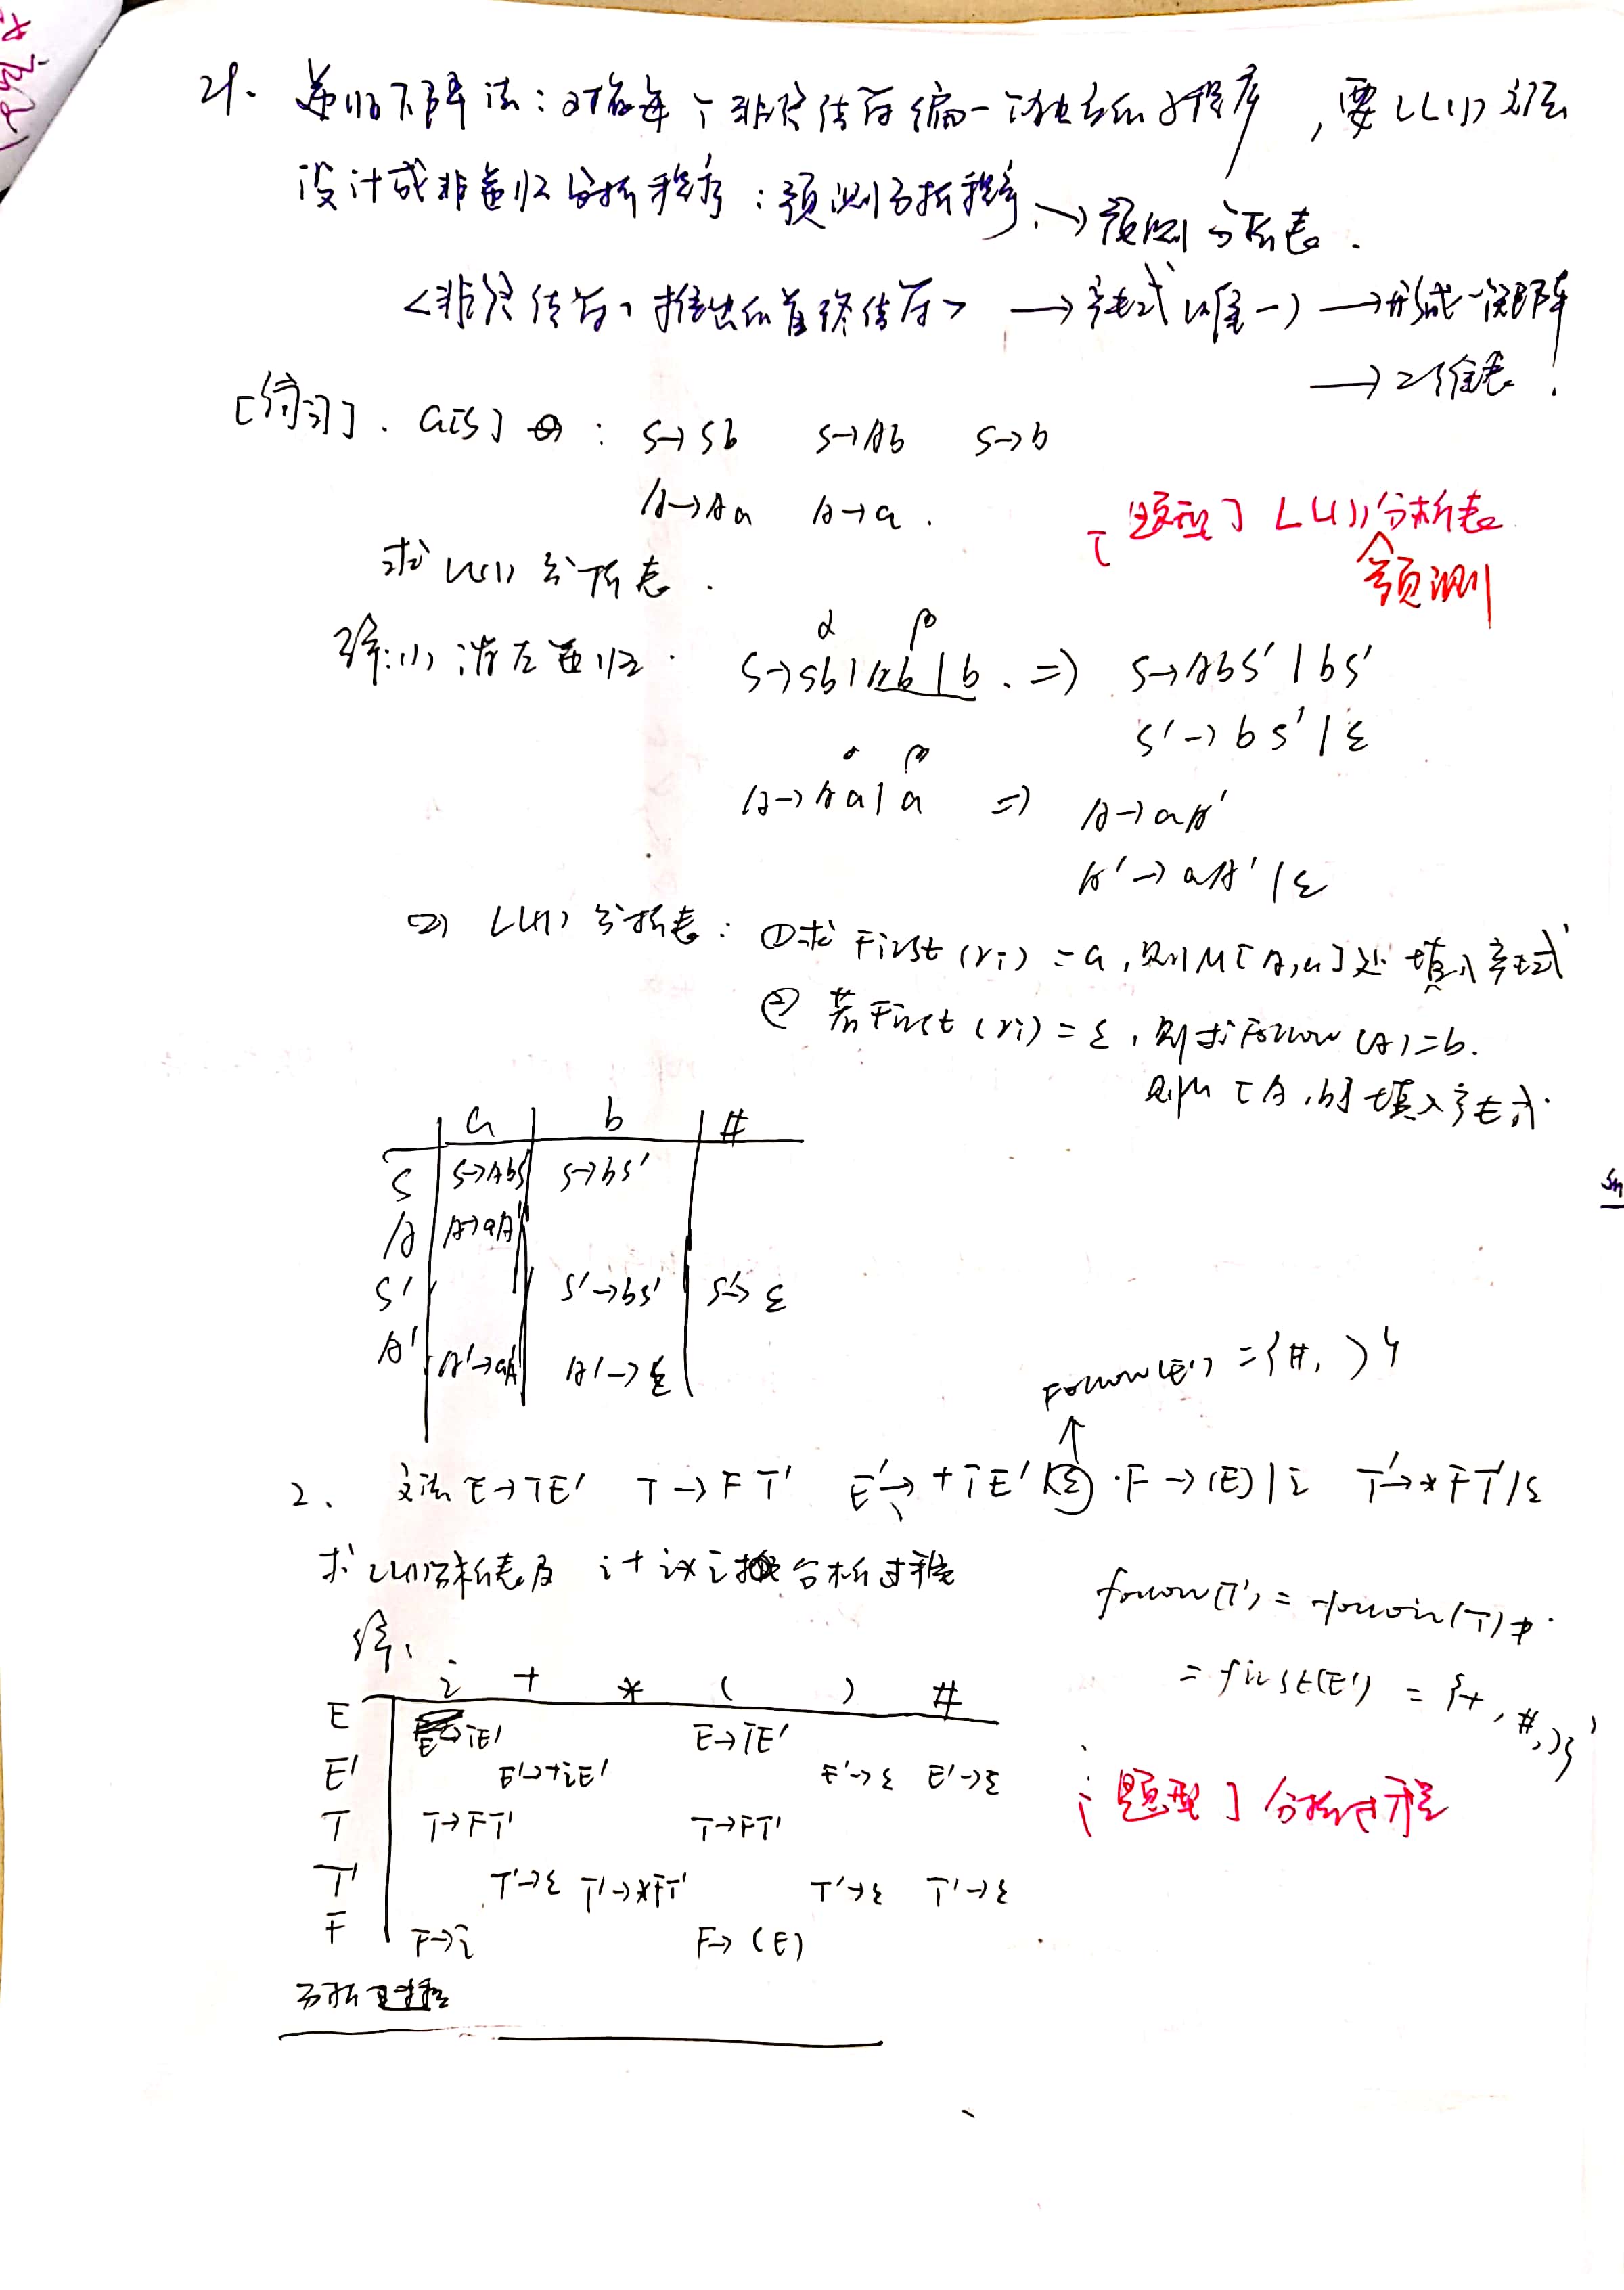 21. 递归下降法：对每个非终结符编一个独立的子程序，要LL(1)文法
设计成非递归分析程序：预测分析程序 → 预测分析表.
<非终结符，推出的首终结符> → 产生式(唯一) → 形成一个矩阵
→ 2维表!
[练习]. G[S] : S→Sb S→Ab S→b
A→Aa A→a.
[题型] LL(1)分析表
预测
求LL(1)分析表.
解:(1) 消左递归. S→Sb|Ab|b. ⇒ S→AbS'|bS'
α β
S'→bS'|ε
A→Aa|a ⇒ A→aA'
α β
A'→aA'|ε
(2) LL(1)分析表: ①求First(ri)=a,则M[A,a]处填入产生式
② 若First(ri)=ε,则求Follow(A)=b.
则M[A,b]填入产生式.
a b #
S S→AbS' S→bS'
A A→aA'
S' S'→bS' S'→ε
A' A'→aA' A'→ε
Follow(E')={#, )}
2、 文法E→TE' T→FT' E'→+TE'|ε · F→(E)|i T'→*FT'|ε
求LL(1)分析表及 i+i*i 分析过程
follow(T')=follow(T)
=first(E') = {+, #, )}
解:
i + * ( ) #
E E→TE' E→TE'
E' E'→+TE' E'→ε E'→ε
T T→FT' T→FT'
T' T'→ε T'→*FT' T'→ε T'→ε
F F→i F→(E)
[题型] 分析过程
分析过程